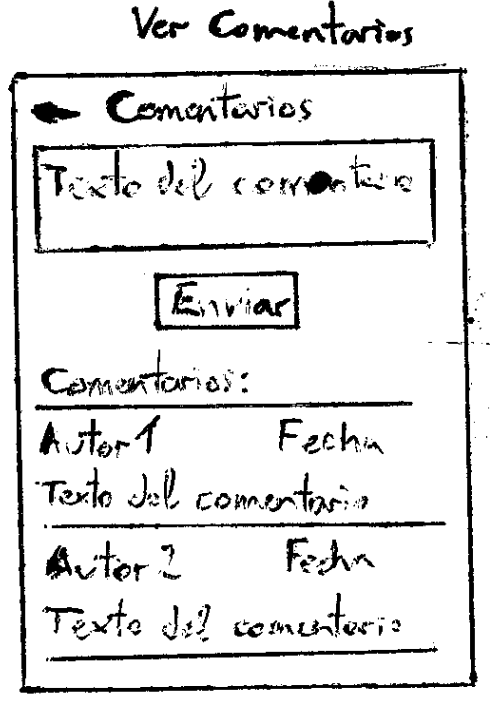 Ver Comentarios
Comentarios
Texto del comentario
Enviar
Comentarios:
Autor 1 Fecha
Texto del comentario
Autor 2 Fecha
Texto del comentario